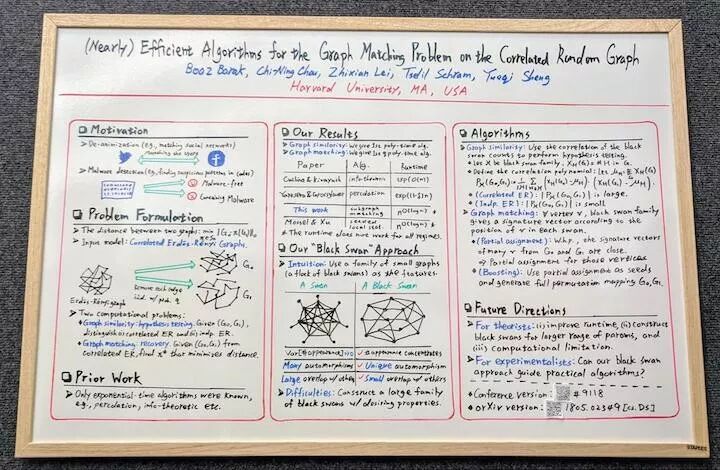 (Nearly) Efficient Algorithms for the Graph Matching Problem on the Correlated Random Graph
Boaz Barak, Chi-Ning Chou, Zhixian Lei, Tselil Schram, Yueqi Sheng
Harvard University, MA, USA
Motivation
De-anonimization (e.g., matching social networks)
Malware detection (e.g., finding suspicious patterns in codes)
Malware-free
Containing Malware
Problem Formulation
The distance between two graphs: min ||G₀-π(G₁)||₀
Input model: Correlated Erdős-Rényi Graphs.
G₀
remove each edge
i.i.d. w/ prob.
Erdős-Rényi graph
G₁
Two computational problems:
Graph similarity: hypothesis testing. Given (G₀,G₁),
distinguish correlated ER and indep. ER.
Graph matching: recovery. Given (G₀,G₁) from
correlated ER, find π* that minimizes distance.
Prior Work
Only exponential-time algorithms were known,
e.g., percolation, info-theoretic etc.
Our Results
Graph similarity: we give 1st poly-time alg.
Graph matching: we give 1st poly-time alg.
Paper Alg. Runtime
Cullina & Kiyavash info-theoretic
Yartseva & Grossglauser percolation
This work subgraph matching
Mossel & Xu seeded local stat.
* The runtime does not work for all regimes.
Our "Black Swan" Approach
Intuition: Use a family of small graphs
(a flock of black swans) as the features.
A Swan A Black Swan
Var[# appearance] # appearance concentrates
Many automorphism Unique automorphism
Large overlap w/ others Small overlap w/ others
Difficulties: Construct a large family
of black swans w/ desiring properties.
Algorithms
Graph similarity: Use the correlation of the black
swan counts to perform hypothesis testing.
Let X be black swan family, X_H(G) = # H in G.
Define the correlation polynomial:
(Correlated ER): |P_X(G₀,G₁)| is large.
(Indp. ER): |P_X(G₀,G₁)| is small.
Graph matching: ∀ vertex v, black swan family
gives a signature vector according to the
position of v in each swan.
(Partial assignment): W.h.p., the signature vectors
of many v from G₀ and G₁ are close.
⇒ Partial assignment for those vertices
(Boosting): Use partial assignment as seeds
and generate full permutation mapping G₀,G₁.
Future Directions
For theorists: (i) improve runtime, (ii) construct
black swans for larger range of params, and
(iii) computational limitation.
For experimentalists: Can our black swan
approach guide practical algorithms?
Conference version: #9118
arXiv version: 1805.02349 [cs.DS]
STAPLES